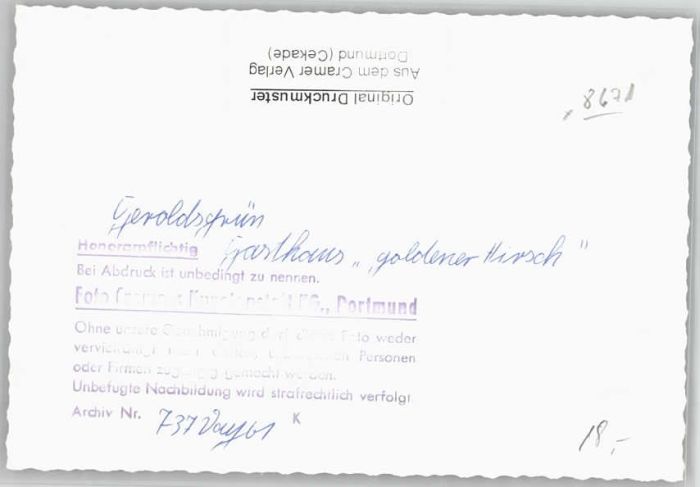 Original Druckmuster
Aus dem Cramer Verlag
Dortmund (Cekade)
8671
Geroldsgrün
Honorarpflichtig Gasthaus „goldener Hirsch"
Bei Abdruck ist unbedingt zu nennen.
Foto Cramers Kunstanstalt KG., Dortmund
Ohne unsere Genehmigung darf dieses Foto weder
vervielfältigt noch dritten, Personen
oder Firmen zugängig gemacht werden.
Unbefugte Nachbildung wird strafrechtlich verfolgt
Archiv Nr. 737 K
18,-